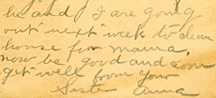 he and I are going
out next week to clean
house for mama,
now be good and soon
get well from your
Sister Anna